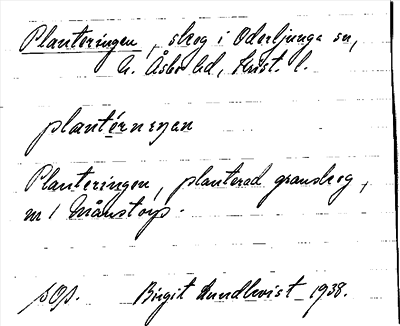 Planteringen, skog i Oderljunga sn,
N. Åsbo hd, Krist. l.
plantérnıŋan
Planteringen, planterad granskog,
nr 1 Månstorp.
sOp. Birgit Lundkvist 1938.